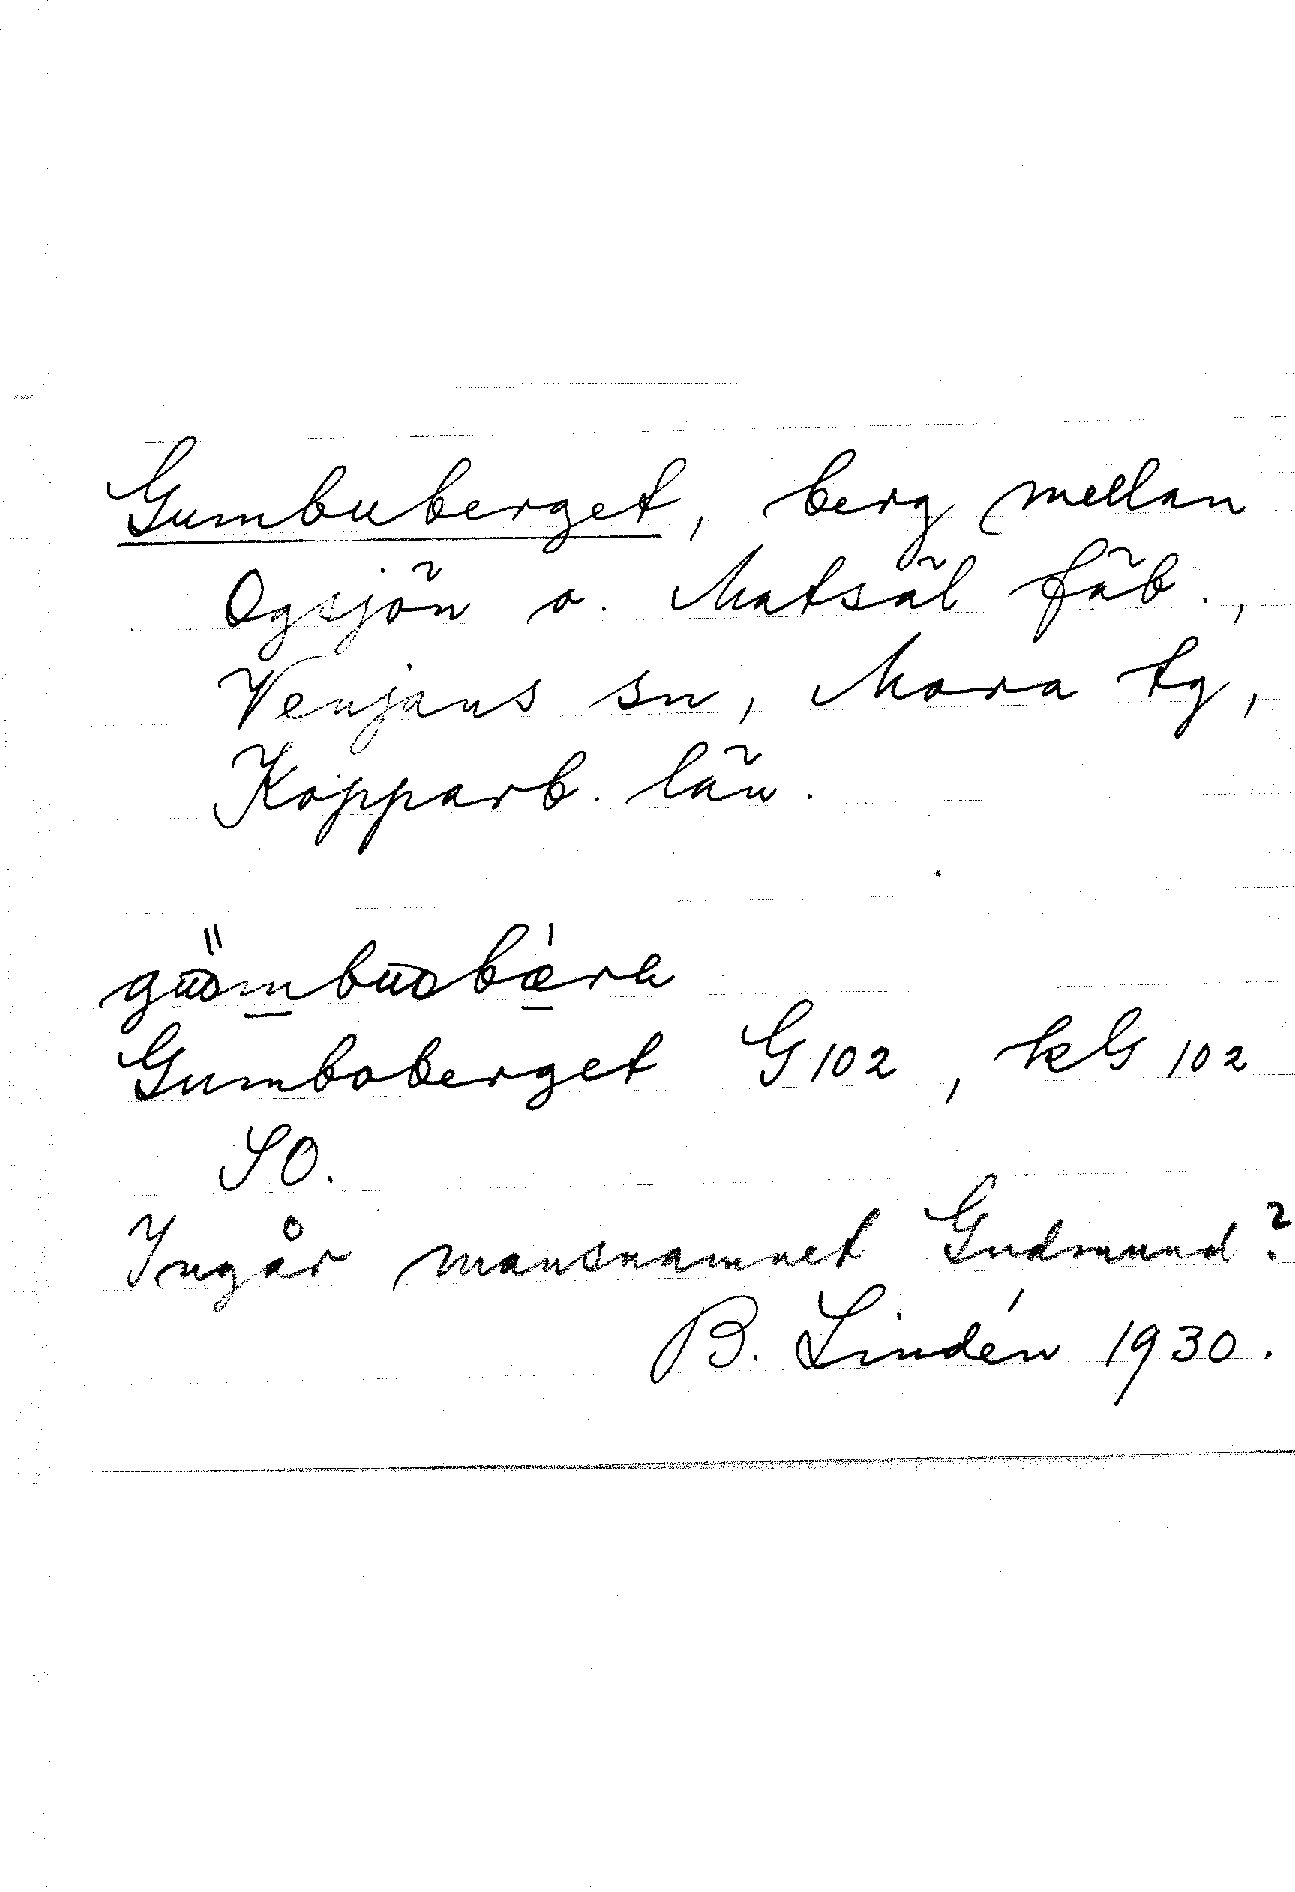 Gumbuberget, berg mellan
Ogsjön o. Matsäl fäb.,
Venjans sn, Mora tg,
Kopparb. län.
Gumboberget G 102, kG 102
SO.
Ingår mansnamnet Gudmund?
B. Lindén 1930.